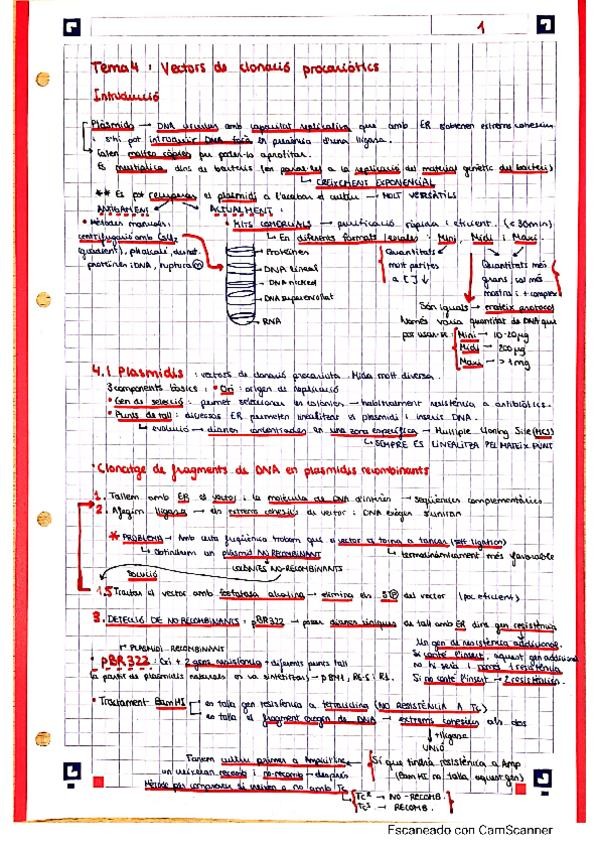 1
Tema 4: Vectors de clonació procariòtics
Introducció
Plàsmids → DNA circular amb capacitat replicativa que amb ER s'obtenen extrems cohesius
i s'hi pot introduir DNA forà en presència d'una lligasa.
Existen moltes còpies
Es multiplica dins de bacteris (en paral·lel a la replicació del material genètic del bacteri)
↳ CREIXEMENT EXPONENCIAL
** Es pot recuperar el plasmidi a l'acabar el cultiu → MOLT VERSÀTILS
ANTIGAMENT ACTUALMENT
• Mètodes manuals: • KITS COMERCIALS → purificació ràpida i eficient. (< 30min)
centrifugació amb
↳ En diferents formats/escales: Mini, Midi i Maxi.
Proteïnes
DNA lineal
DNA nicked
DNA superenrotllat
RNA
Quantitats
molt petites
a [ ] ↓
Quantitats més
grans
mostra i + complexa
Són iguals → mateix protocol
Només varia quantitat de DNA que
Mini → 10-20µg
Midi → 200µg
Maxi → >1mg
4.1 Plasmidis: vectors de clonació procariota. Mida molt diversa.
3 components bàsics: • Ori: origen de replicació
• Gen de selecció: permet seleccionar les colònies → habitualment resistència a antibiòtics.
• Punts de tall: diversos ER permeten linealitzar el plasmidi i inserir DNA.
↳ evolució → dianes concentrades en una zona específica → Multiple Cloning Site (MCS)
↳ SEMPRE ES LINEALITZA PEL MATEIX PUNT
• Clonatge de fragments de DNA en plasmidis recombinants
1. Tallem amb ER el vector i la molècula de DNA d'interès → seqüències complementàries.
2. Afegim lligasa → els extrems cohesius de vector i DNA exògen s'uniran
* PROBLEMA → Amb alta freqüència trobem que el vector es torna a tancar (self ligation)
↳ Obtindrem un plasmid NO RECOMBINANT
↳ termodinàmicament més favorable
COLÒNIES NO-RECOMBINANTS
SOLUCIÓ
1.5 Tractar el vector amb fosfatasa alcalina → elimina els 5'P del vector (poc eficient)
3. DETECCIÓ DE NO RECOMBINANTS: pBR322 → posar dianes úniques de tall amb ER dins gen resistència
↱ PLASMIDI RECOMBINANT
• pBR322: Ori + 2 gens resistència + diferents punts tall
(a partir de plasmidis naturals es va sintetitzar) → pBM1, RSF i R1.
Un gen de resistència addicional.
Si conté l'insert, aquest gen addicional
no hi serà i només 1 resistència
Si no conté l'insert → 2 resistències.
• Tractament BamHI
es talla gen resistència a tetraciclina (NO RESISTÈNCIA A Tc)
es talla el fragment exogen de DNA → extrems cohesius als dos
↓ + lligasa
UNIÓ
Fariem cultiu primer a Ampicil·lina
un creixeran recomb i no-recomb → després
Mètode per comprovar si creixen o no amb Tc
Sí que tindrà resistència a Amp
(BamHI no talla aquest gen)
TcR → NO-RECOMB.
TcS → RECOMB.
Escaneado con CamScanner